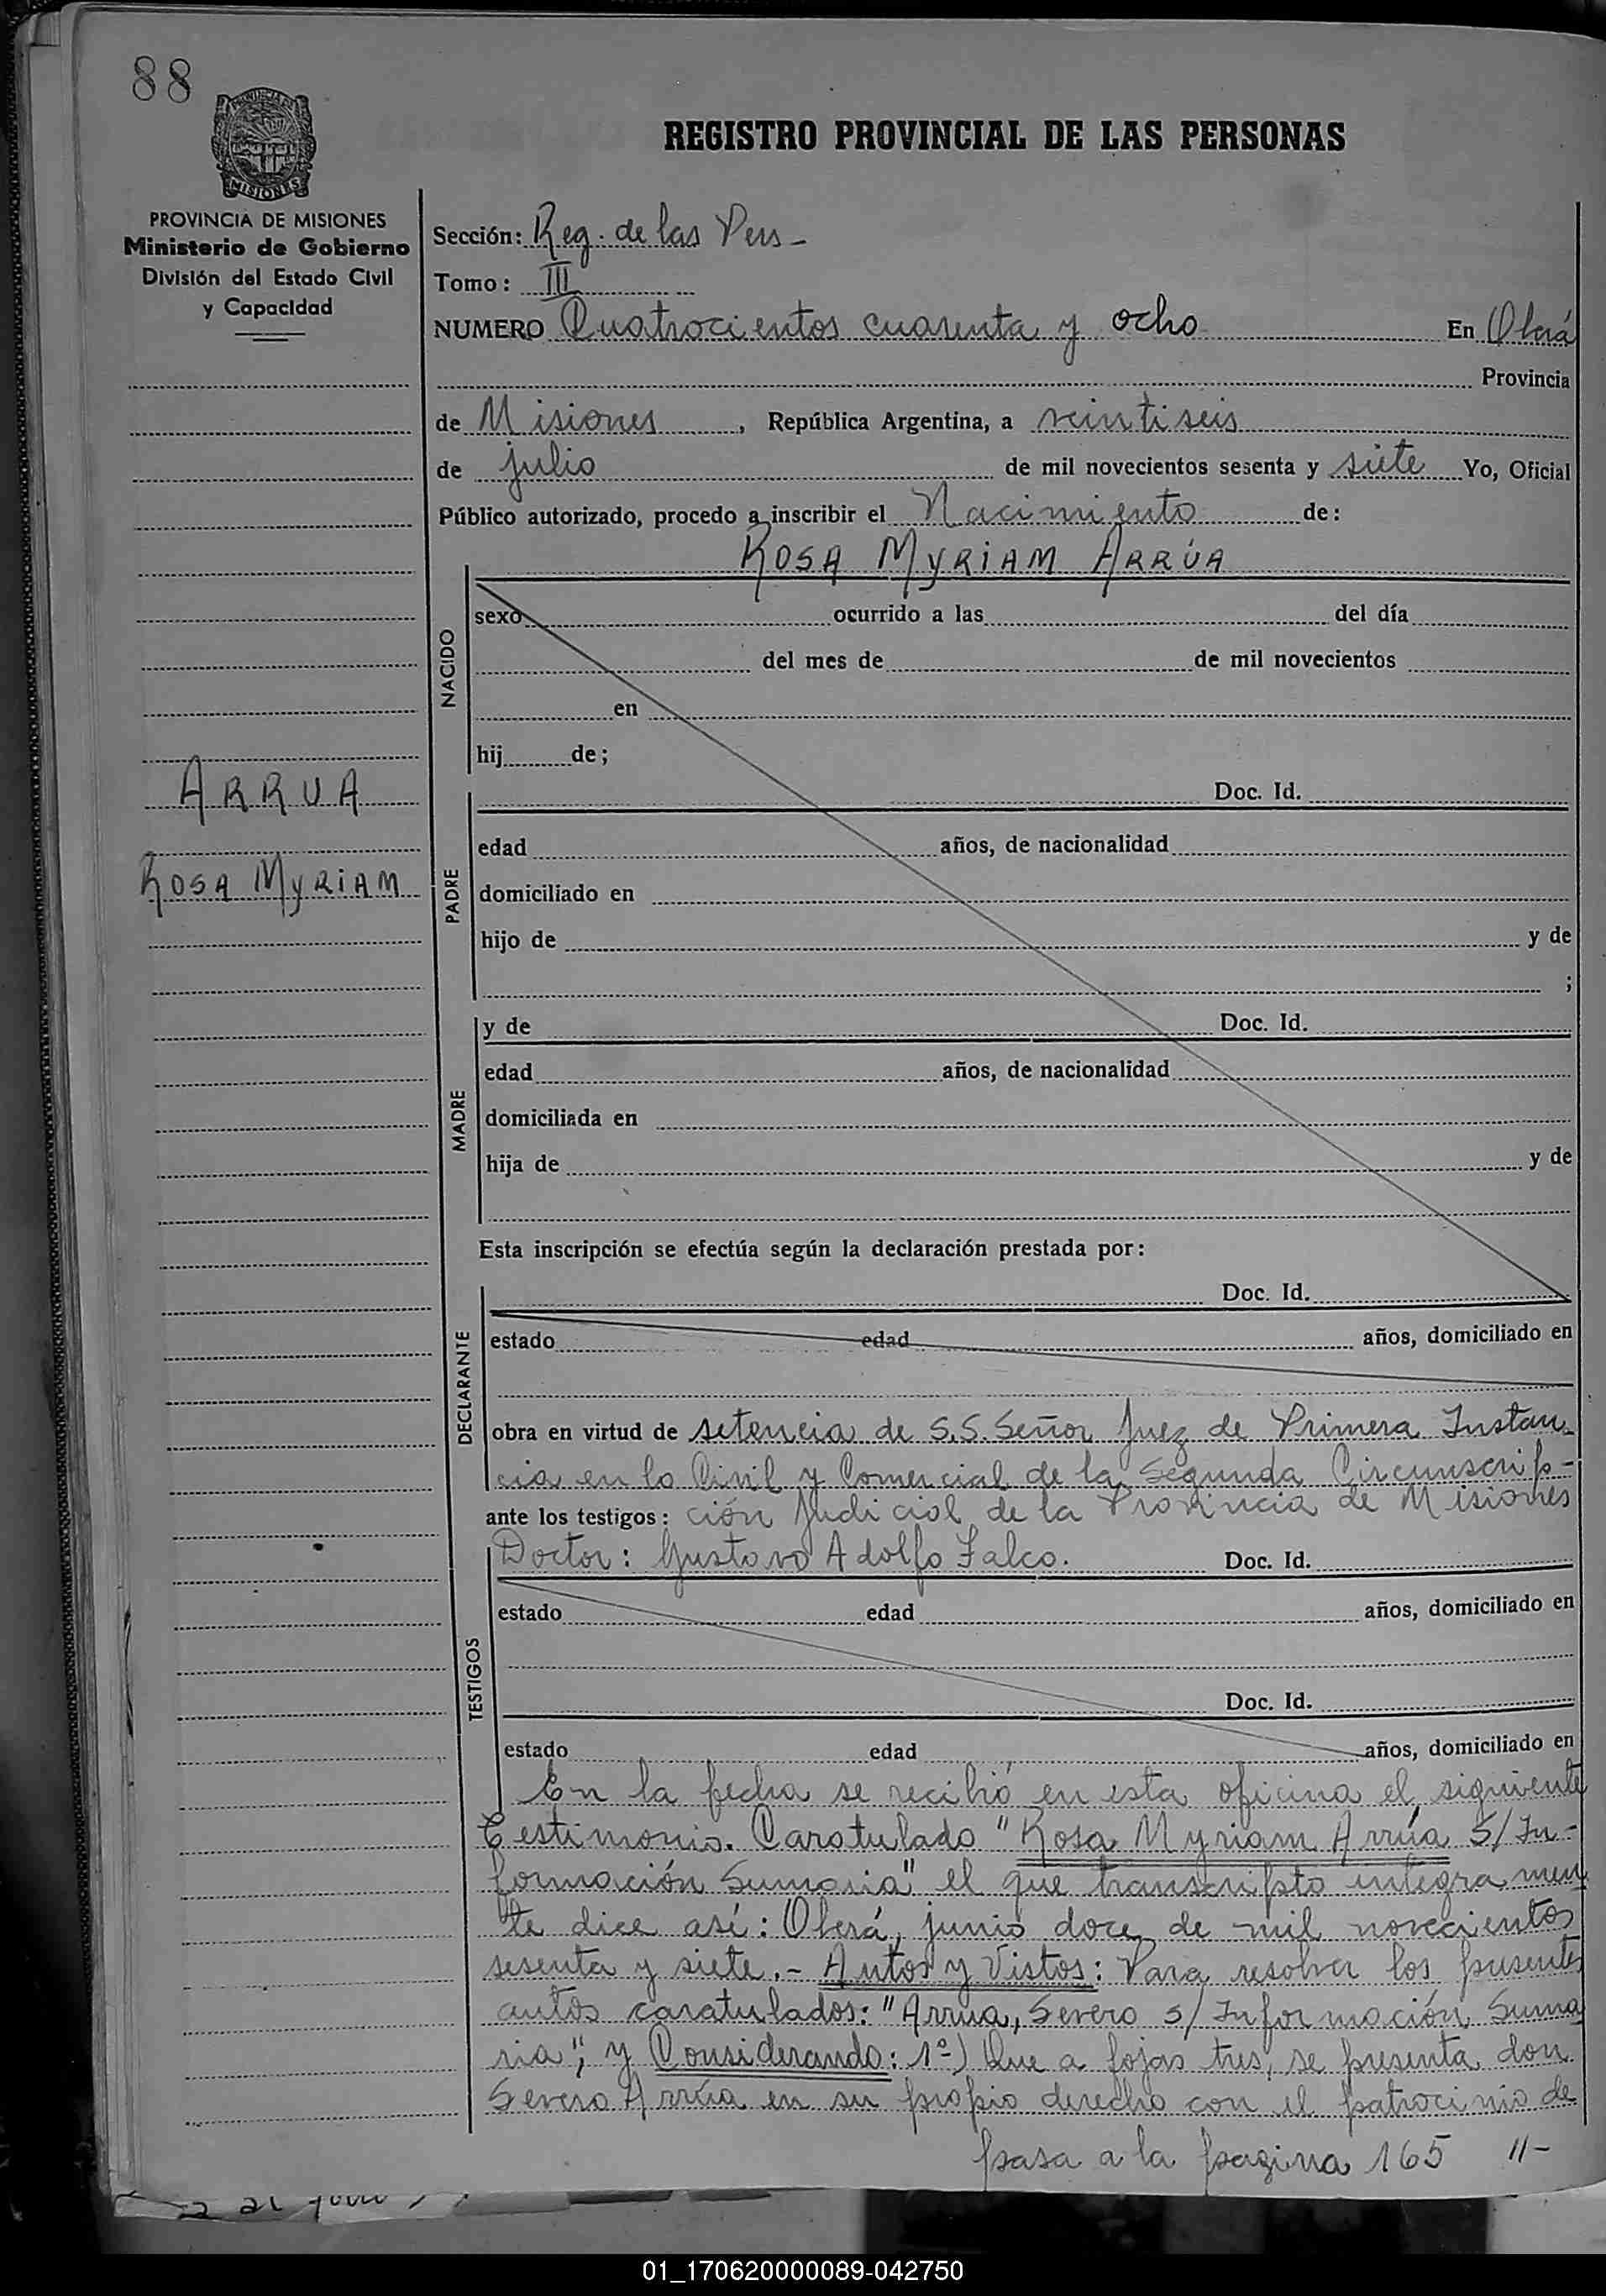 88
PROVINCIA DE
MISIONES
PROVINCIA DE MISIONES
Ministerio de Gobierno
División del Estado Civil
y Capacidad
REGISTRO PROVINCIAL DE LAS PERSONAS
Sección: Reg. de las Pers -
Tomo: III
NUMERO Cuatrocientos cuarenta y ocho En Oberá
Provincia
de Misiones, República Argentina, a veintiseis
de julio de mil novecientos sesenta y siete Yo, Oficial
Público autorizado, procedo a inscribir el Nacimiento de:
ROSA MYRIAM ARRÚA
NACIDO
sexo ocurrido a las del día
del mes de de mil novecientos
en
hij de;
ARRUA
ROSA MYRIAM
PADRE
Doc. Id.
edad años, de nacionalidad
domiciliado en
hijo de y de
;
MADRE
y de Doc. Id.
edad años, de nacionalidad
domiciliada en
hija de y de
Esta inscripción se efectúa según la declaración prestada por:
DECLARANTE
Doc. Id.
estado edad años, domiciliado en
obra en virtud de setencia de S.S. Señor Juez de Primera Instan
cia en lo Civil y Comercial de la Segunda Circunscrip-
ante los testigos: ción Judicial de la Provincia de Misiones
TESTIGOS
Doctor: Gustavo Adolfo Falco. Doc. Id.
estado edad años, domiciliado en
Doc. Id.
estado edad años, domiciliado en
En la fecha se recibió en esta oficina el siguiente
Testimonio. Caratulado "Rosa Myriam Arrúa S/ In-
formación Sumaria" el que transcripto integramen
te dice así: Oberá, junio doce de mil novecientos
sesenta y siete.- Autos y Vistos: Para resolver los presentes
autos caratulados: "Arrúa, Severo s/ Información Suma
ria"; y Considerando: 1º) Que a fojas tres, se presenta don
Severo Arrúa en su propio derecho con el patrocinio de
pasa a la pagina 165 //-
01_170620000089-042750